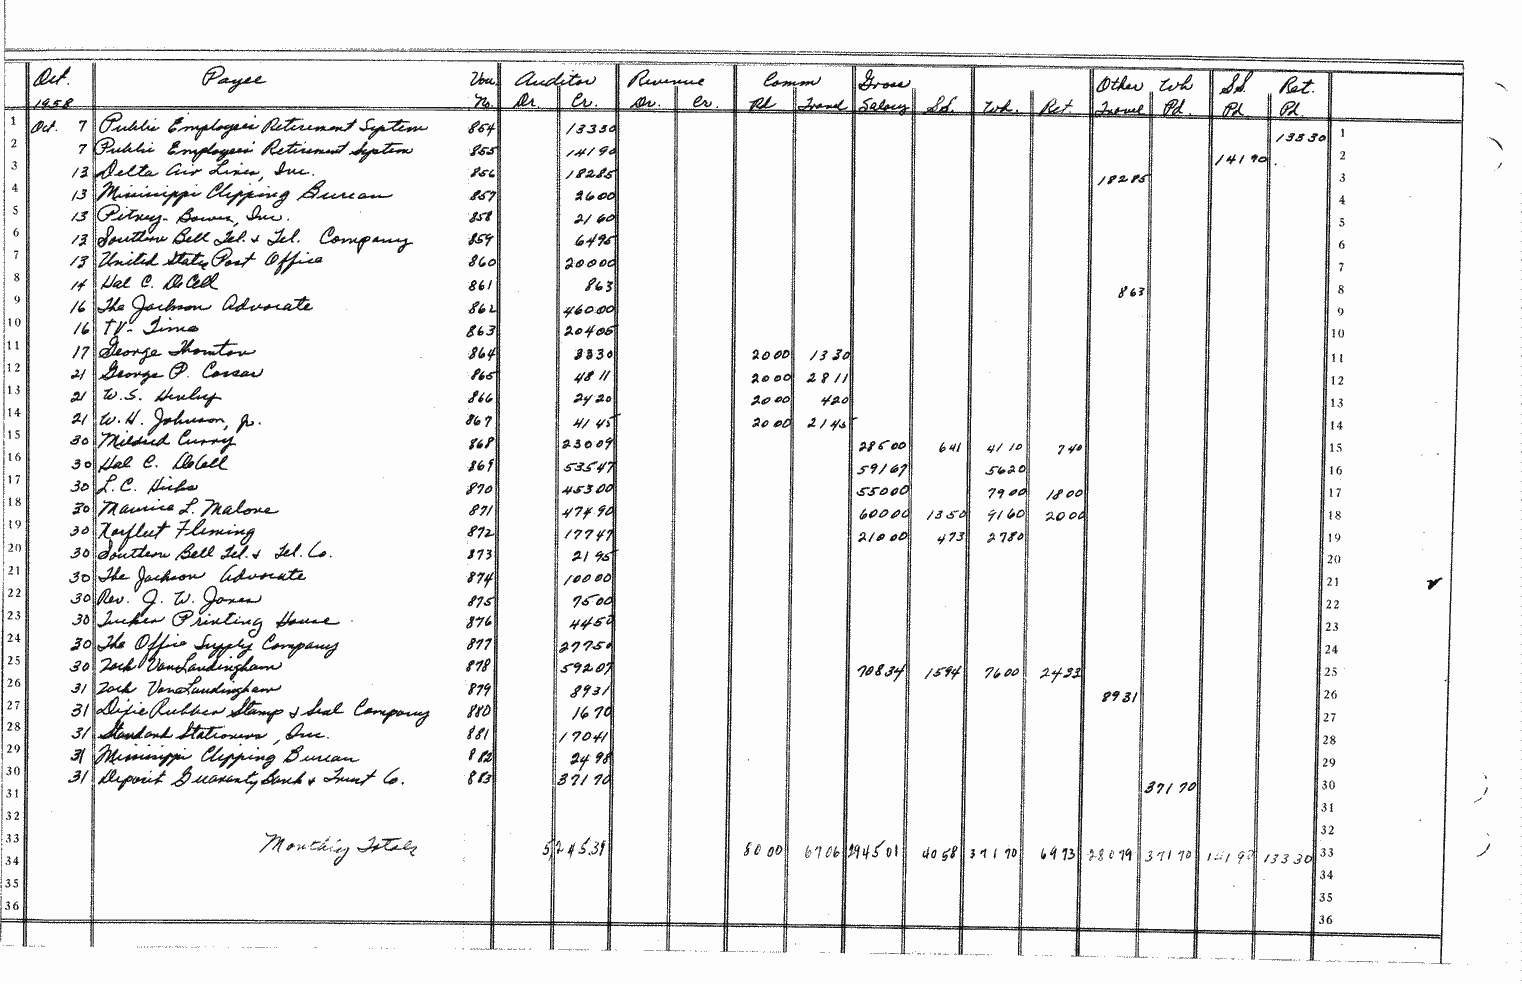 Oct. Payee Vou. Auditor Revenue Comm Gross Other Wh SS. Ret.
1958 No. Dr. Cr. Dr. Cr. Pd Travel Salary S.S. Wh. Ret Travel Pd. Pd. Pd.
1 Oct. 7 Public Employees' Retirement System 854 133 30 133 30 1
2 7 Public Employees' Retirement System 855 141 90 141 90 2
3 13 Delta Air Lines, Inc. 856 182 85 182 85 3
4 13 Mississippi Clipping Bureau 857 26 00 4
5 13 Pitney-Bowes, Inc. 858 21 60 5
6 13 Southern Bell Tel. & Tel. Company 859 64 95 6
7 13 United States Post Office 860 200 00 7
8 14 Hal C. DeCell 861 8 63 8 63 8
9 16 The Jackson Advocate 862 460 00 9
10 16 TV-Time 863 204 05 10
11 17 George Thornton 864 33 30 20 00 13 30 11
12 21 George P. Cossar 865 48 11 20 00 28 11 12
13 21 W.S. Henley 866 24 20 20 00 4 20 13
14 21 W.H. Johnson, Jr. 867 41 45 20 00 21 45 14
15 30 Mildred Curry 868 230 09 285 00 6 41 41 10 7 40 15
16 30 Hal C. DeCell 869 535 47 591 67 56 20 16
17 30 L.C. Hicks 870 453 00 550 00 79 00 18 00 17
18 30 Maurice L. Malone 871 474 90 600 00 13 50 91 60 20 00 18
19 30 Norfleet Fleming 872 177 47 210 00 4 73 27 80 19
20 30 Southern Bell Tel. & Tel. Co. 873 21 95 20
21 30 The Jackson Advocate 874 100 00 21
22 30 Rev. J. W. Jones 875 75 00 22
23 30 Tucker Printing House 876 44 50 23
24 30 The Office Supply Company 877 277 50 24
25 30 Zack VanLandingham 878 592 07 708 34 15 94 76 00 24 33 25
26 31 Zack VanLandingham 879 89 31 89 31 26
27 31 Dixie Rubber Stamp & Seal Company 880 16 70 27
28 31 Standard Stationers, Inc. 881 170 41 28
29 31 Mississippi Clipping Bureau 882 24 98 29
30 31 Deposit Guaranty Bank & Trust Co. 883 371 70 371 70 30
31 31
32 32
33 Monthly Totals 5,245.39 80 00 67 06 2945 01 40 58 371 70 69 73 280 79 371 70 141 90 133 30 33
34 34
35 35
36 36